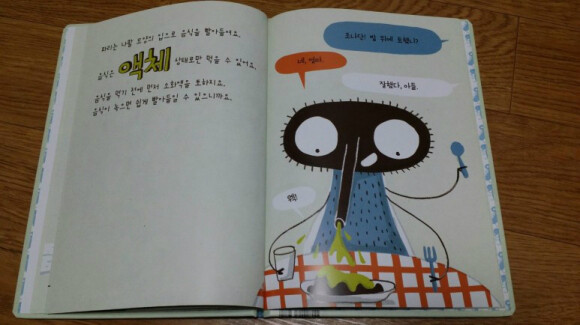 파리는 나팔 모양의 입으로 음식을 빨아들여요.
음식은 액체 상태로만 먹을 수 있어요.
음식을 먹기 전에 먼저 소화액을 토하지요.
음식이 녹으면 쉽게 빨아들일 수 있으니까요.
조나단! 밥 위에 토했니?
네, 엄마.
잘했다, 아들.